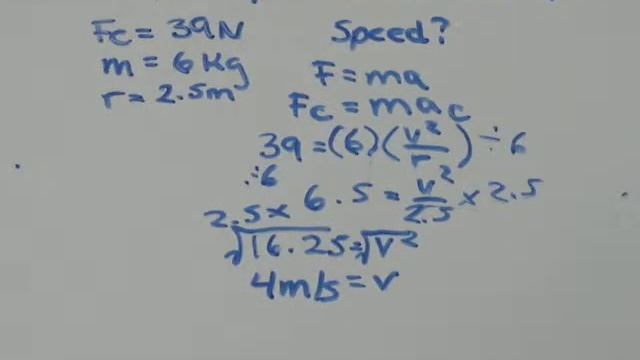 Fc = 39N
m = 6 Kg
r = 2.5m
Speed?
F = ma
Fc = mac
39 = (6)(v²/r) ÷ 6
÷6
2.5 x 6.5 = v²/2.5 x 2.5
√16.25 = √v²
4m/s = v